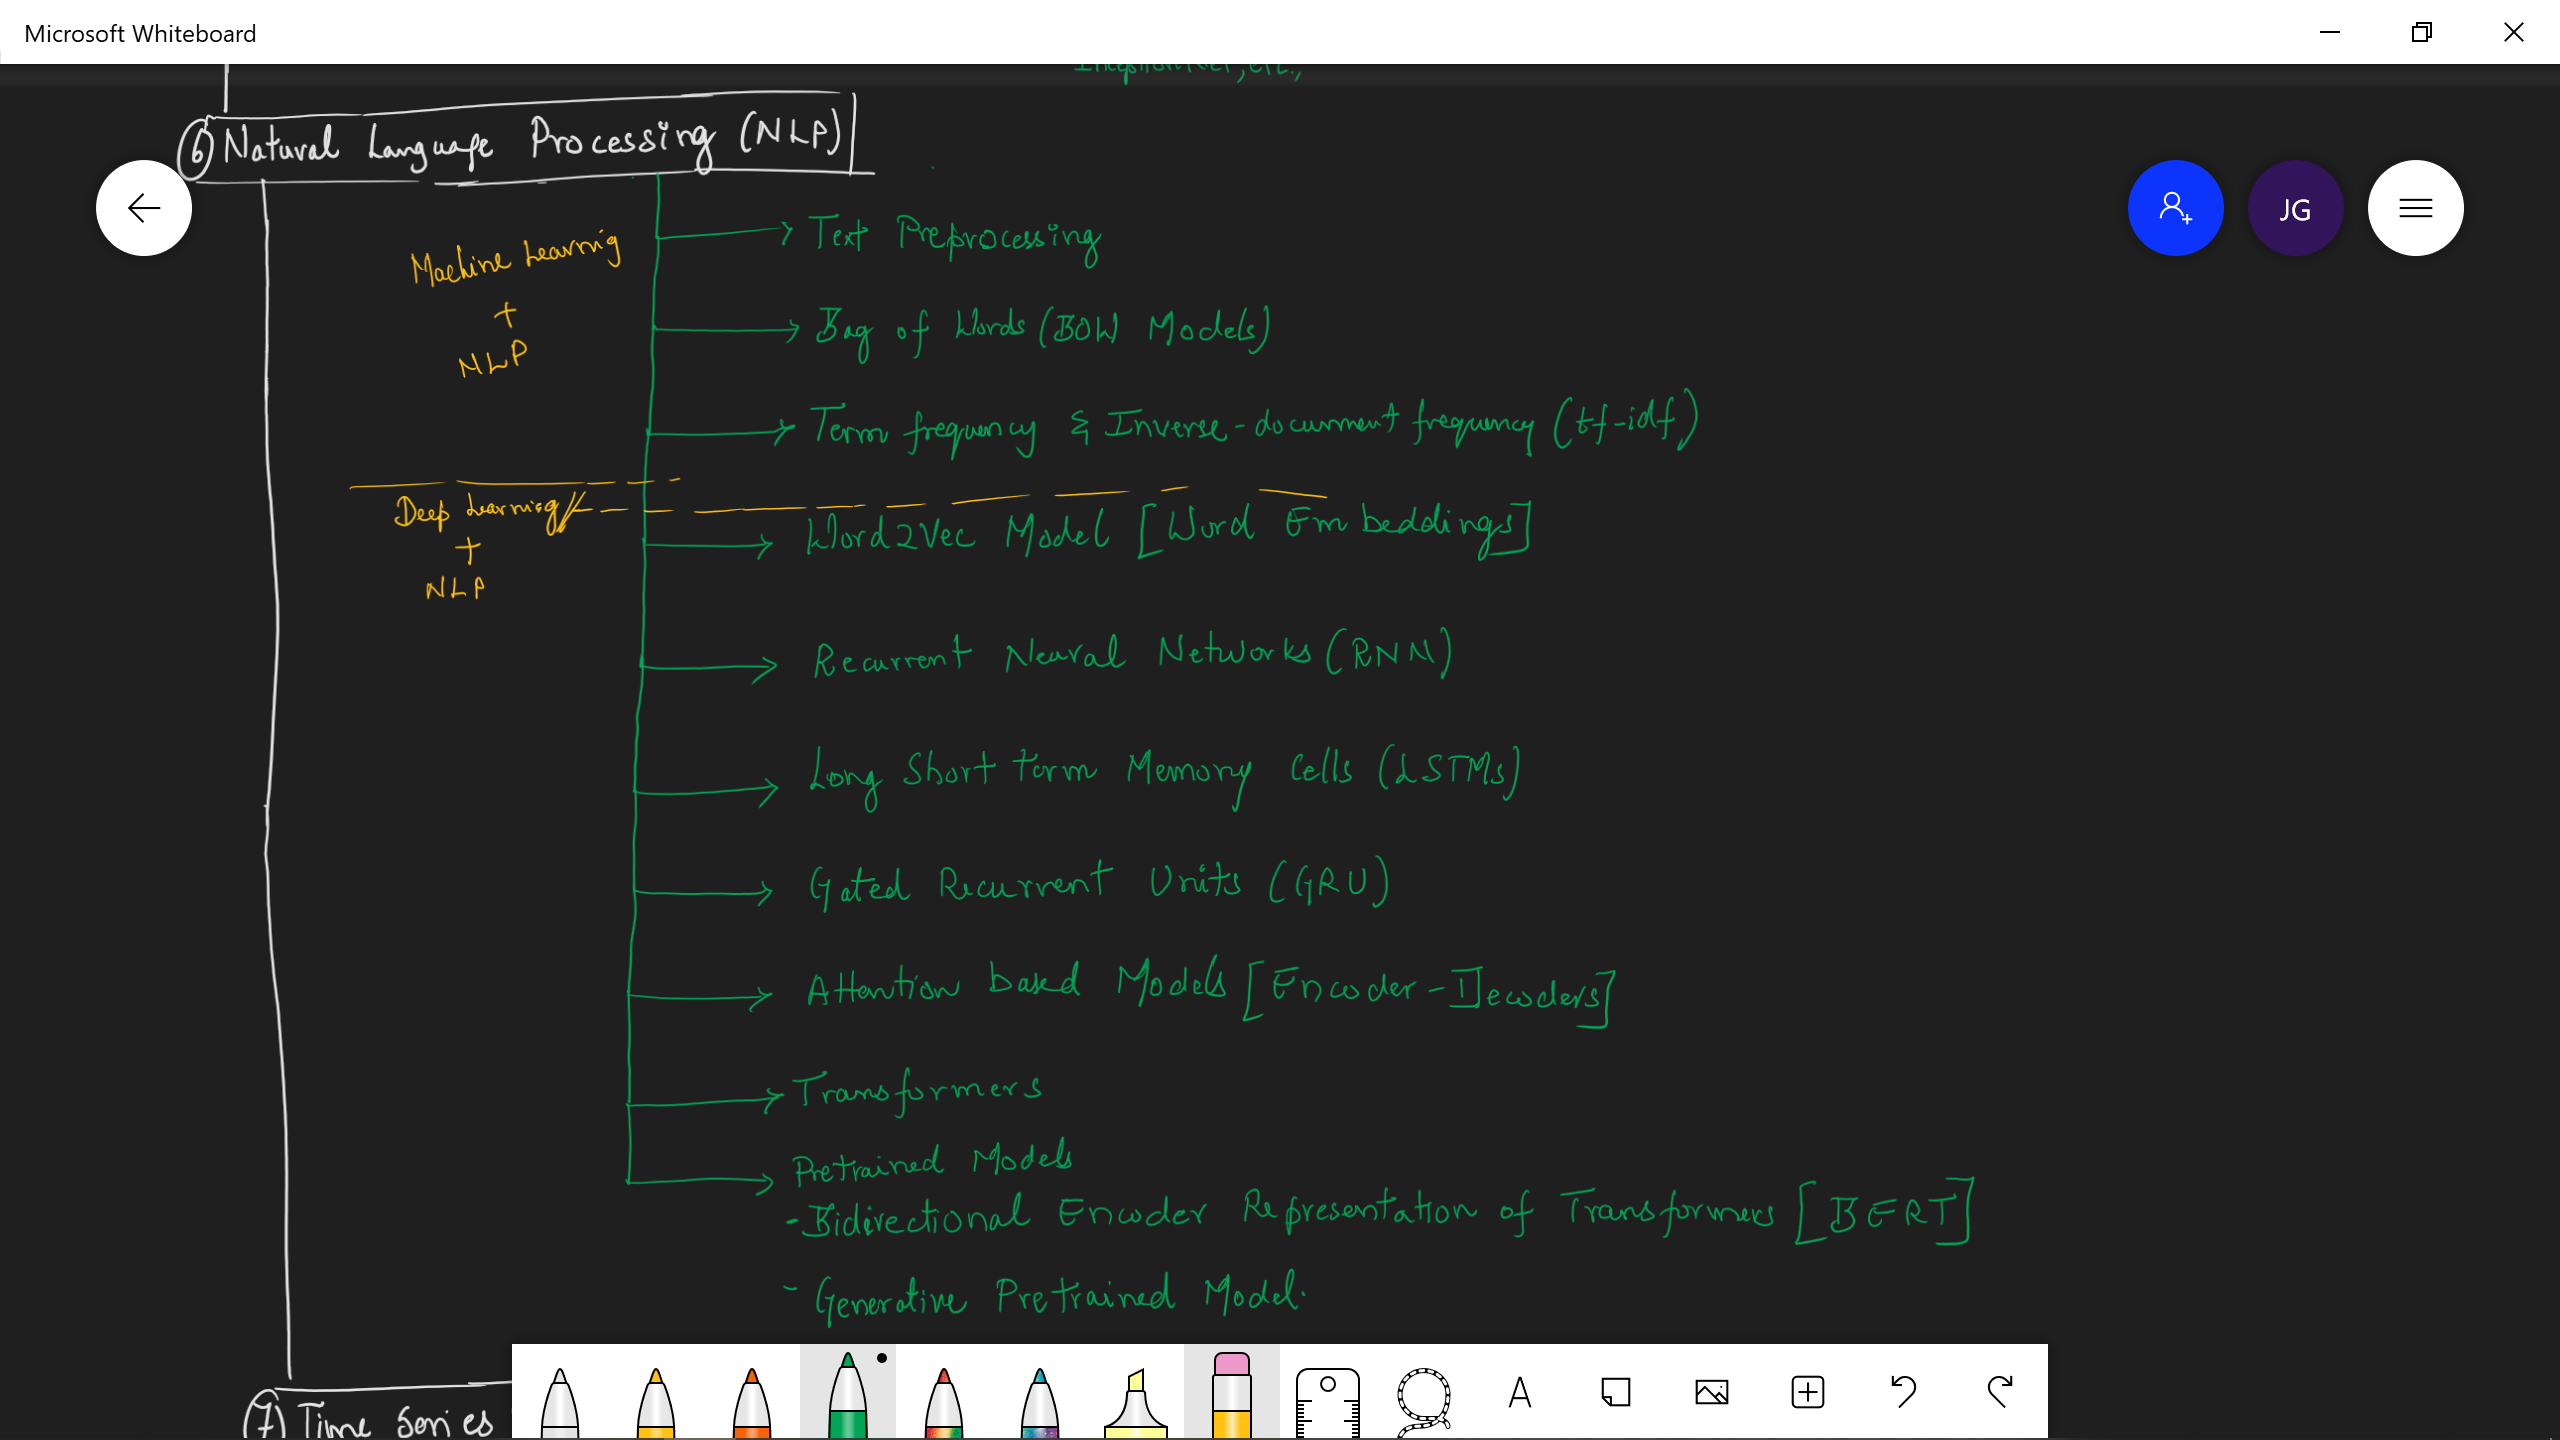 Microsoft Whiteboard
InceptionNet, etc.,
⑥ Natural Language Processing (NLP)
JG
Machine Learnig
+
NLP
Text Preprocessing
Bag of Words (BOW Models)
Term frequency & Inverse-document frequency (tf-idf)
Deep Learning
+
NLP
Word2Vec Model [Word Embeddings]
Recurrent Neural Networks (RNN)
Long Short term Memory Cells (LSTMs)
Gated Recurrent Units (GRU)
Attention based Models [Encoder-Decoders]
Transformers
Pretrained Models
- Bidirectional Encoder Representation of Transformers [BERT]
- Generative Pretrained Model.
⑦ Time Series